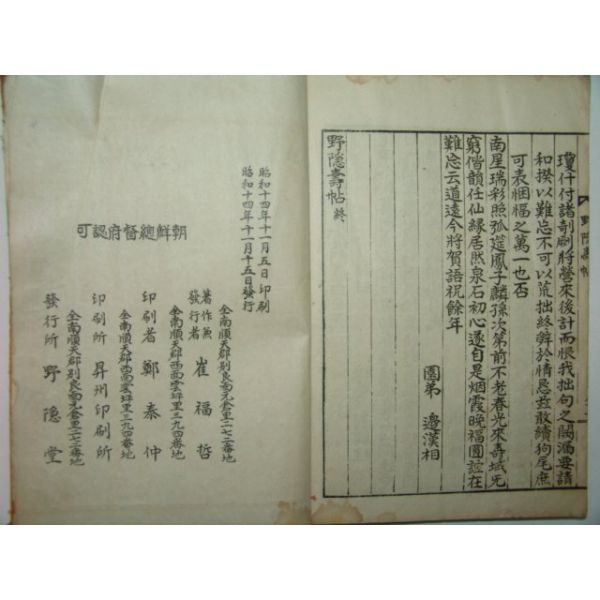 瓊什付諸剞劂將營來後計而恨我拙句之闕漏要請
和揆以難忘不可以荒拙終辭於情忌玆敢續狗尾庶
可表悃愊之萬一也否
南星瑞彩照弧筵鳳子麟孫次第前不老春光來壽域无
窮偕韻任仙緣居然泉石初心遂自是烟霞晚福圓誼在
難忘云道遠今將賀語祝餘年
園弟 邊漢相
野隱壽帖 終
昭和十四年十一月五日印刷
昭和十四年十一月十五日發行
朝鮮總督府認可
全南順天郡別良面元倉里二七二番地
著作兼
發行者 崔福哲
全南順天郡西面雲坪里三九四番地
印刷者 鄭泰仲
全南順天郡西面雲坪里三九四番地
印刷所 昇州印刷所
全南順天郡別良面元倉里二七二番地
發行所 野隱堂